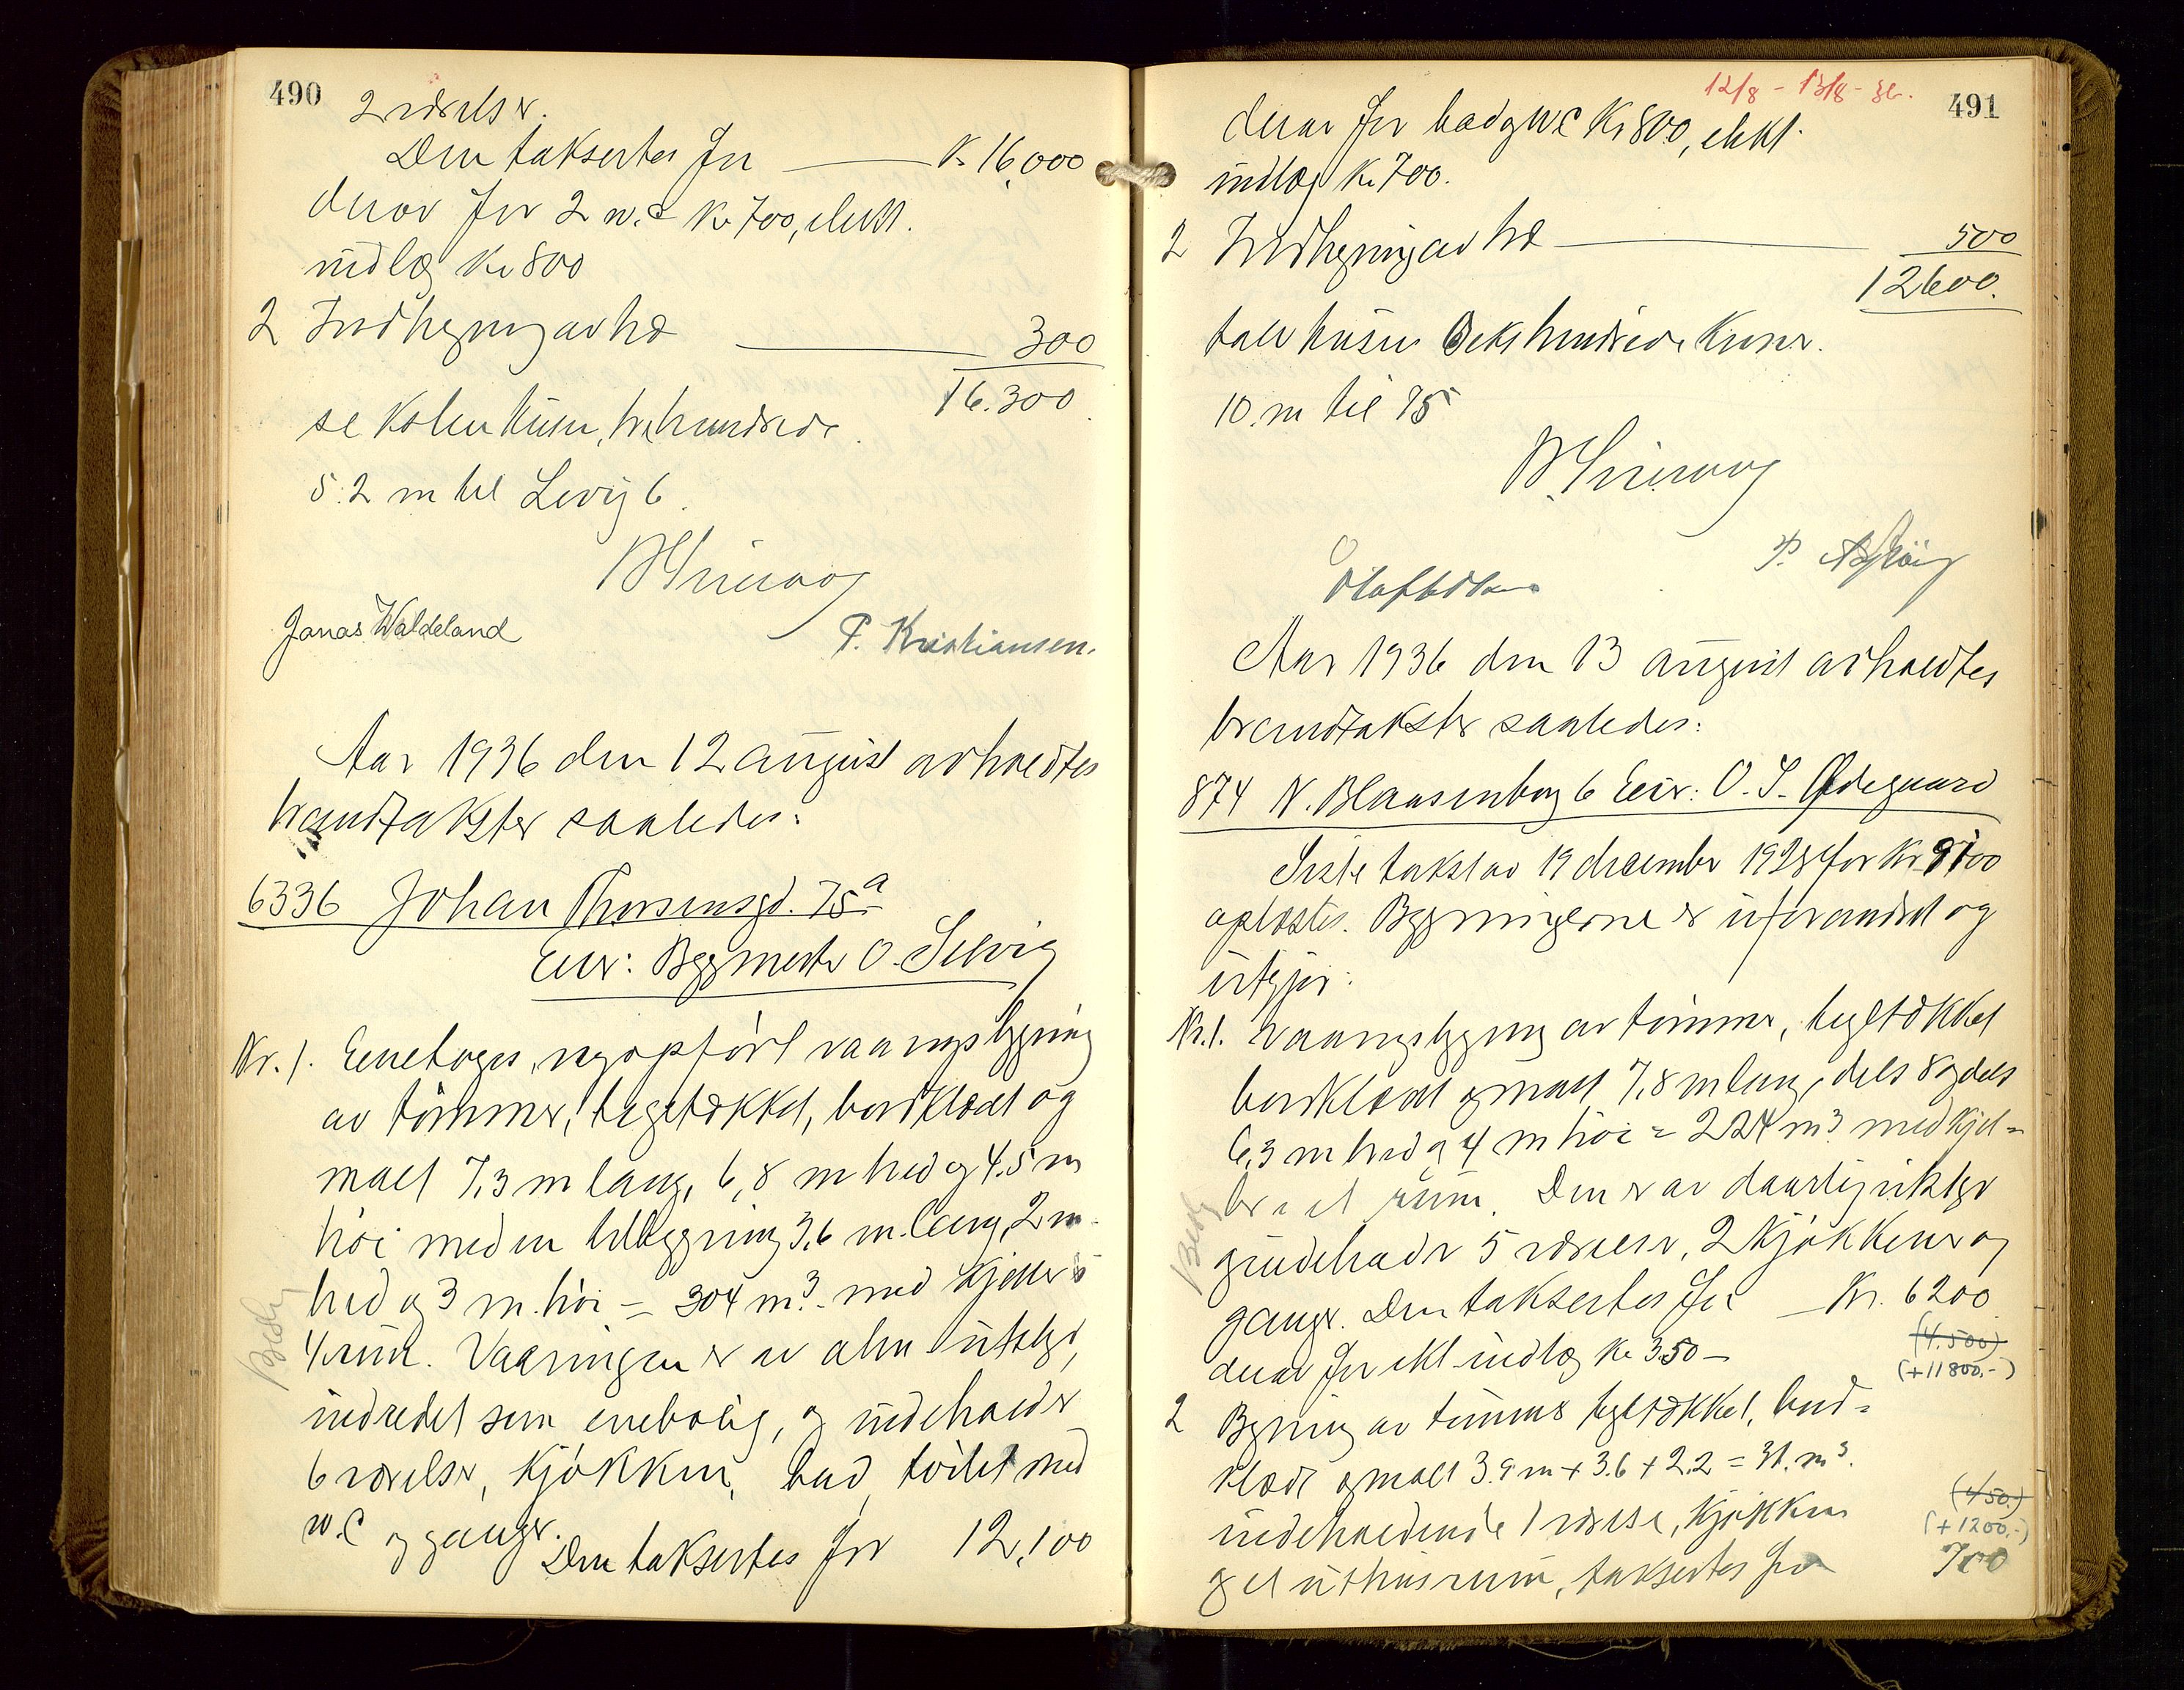 490
2 værelser.
Den taksertes for — Kr 16,000
derav for 2 w.c Kr 700, elekt.
indlæg Kr 800
2 Indhegning av træ — 300
16.300
seksten tusen, trehundrede
5.2 m til Levig 6.
Jonas Waldeland
P. Kristiansen.
Aar 1936 den 12 august avholdtes
brandtakster saaledes:
6336 Johan Thorsensgd. 75a
Eier: Byggmester O. Selvig
Nr. 1. Eenetages, nyopført vaaningsbygning
av tømmer, tegltækket, bordklædt og
malt 7,3 m lang, 6,8 m bred og 4.5 m
høi med en tilbygning 3,6 m. lang, 2 m
bred og 3 m. høi = 304 m³. med kjelder i
4 rum. Vaaningen er av alm. utstyr,
indredet som enebolig, og indeholder
6 værelser, kjøkken, bad, toilet med
w.c og ganger.
Den taksertes for 12,100
12/8 - 13/8 - 36.
491
derav for bad og w.c Kr 800, elekt.
indlæg Kr 700.
2 Indhegning av træ — 500
12600.
tolv tusen sekshundrede kroner.
10. m til 75
Aar 1936 den 13 august avholdtes
brandtakster saaledes:
874 N. Blaasenborg 6 Eier: O. S. Ødegaard
Siste takst av 19 december 1928 for Kr 9100
oplæstes. Bygningerne er uforandret og
utgjør:
Nr. 1. Vaaningsbygning av tømmer, tegltækket
bordklædt og malt 7,8 m lang, dels 8 og dels
6,3 m bred og 4 m høi = 224 m³. med kjel=
der i et rum. Den er av daarlig utstyr
og indeholder 5 værelser, 2 kjøkkener og
ganger. Den taksertes for — Kr. 6200
derav for elekt indlæg Kr 350 —
(4.500)
(+11800.-)
2 Bygning av tømmer tegltækket, bord=
klædt og malt 3.9 m + 3.6 + 2.2 = 31. m³.
indeholdende 1 værelse, kjøkken
og et uthusrum, taksertes for 700
(450.)
(+1200.-)